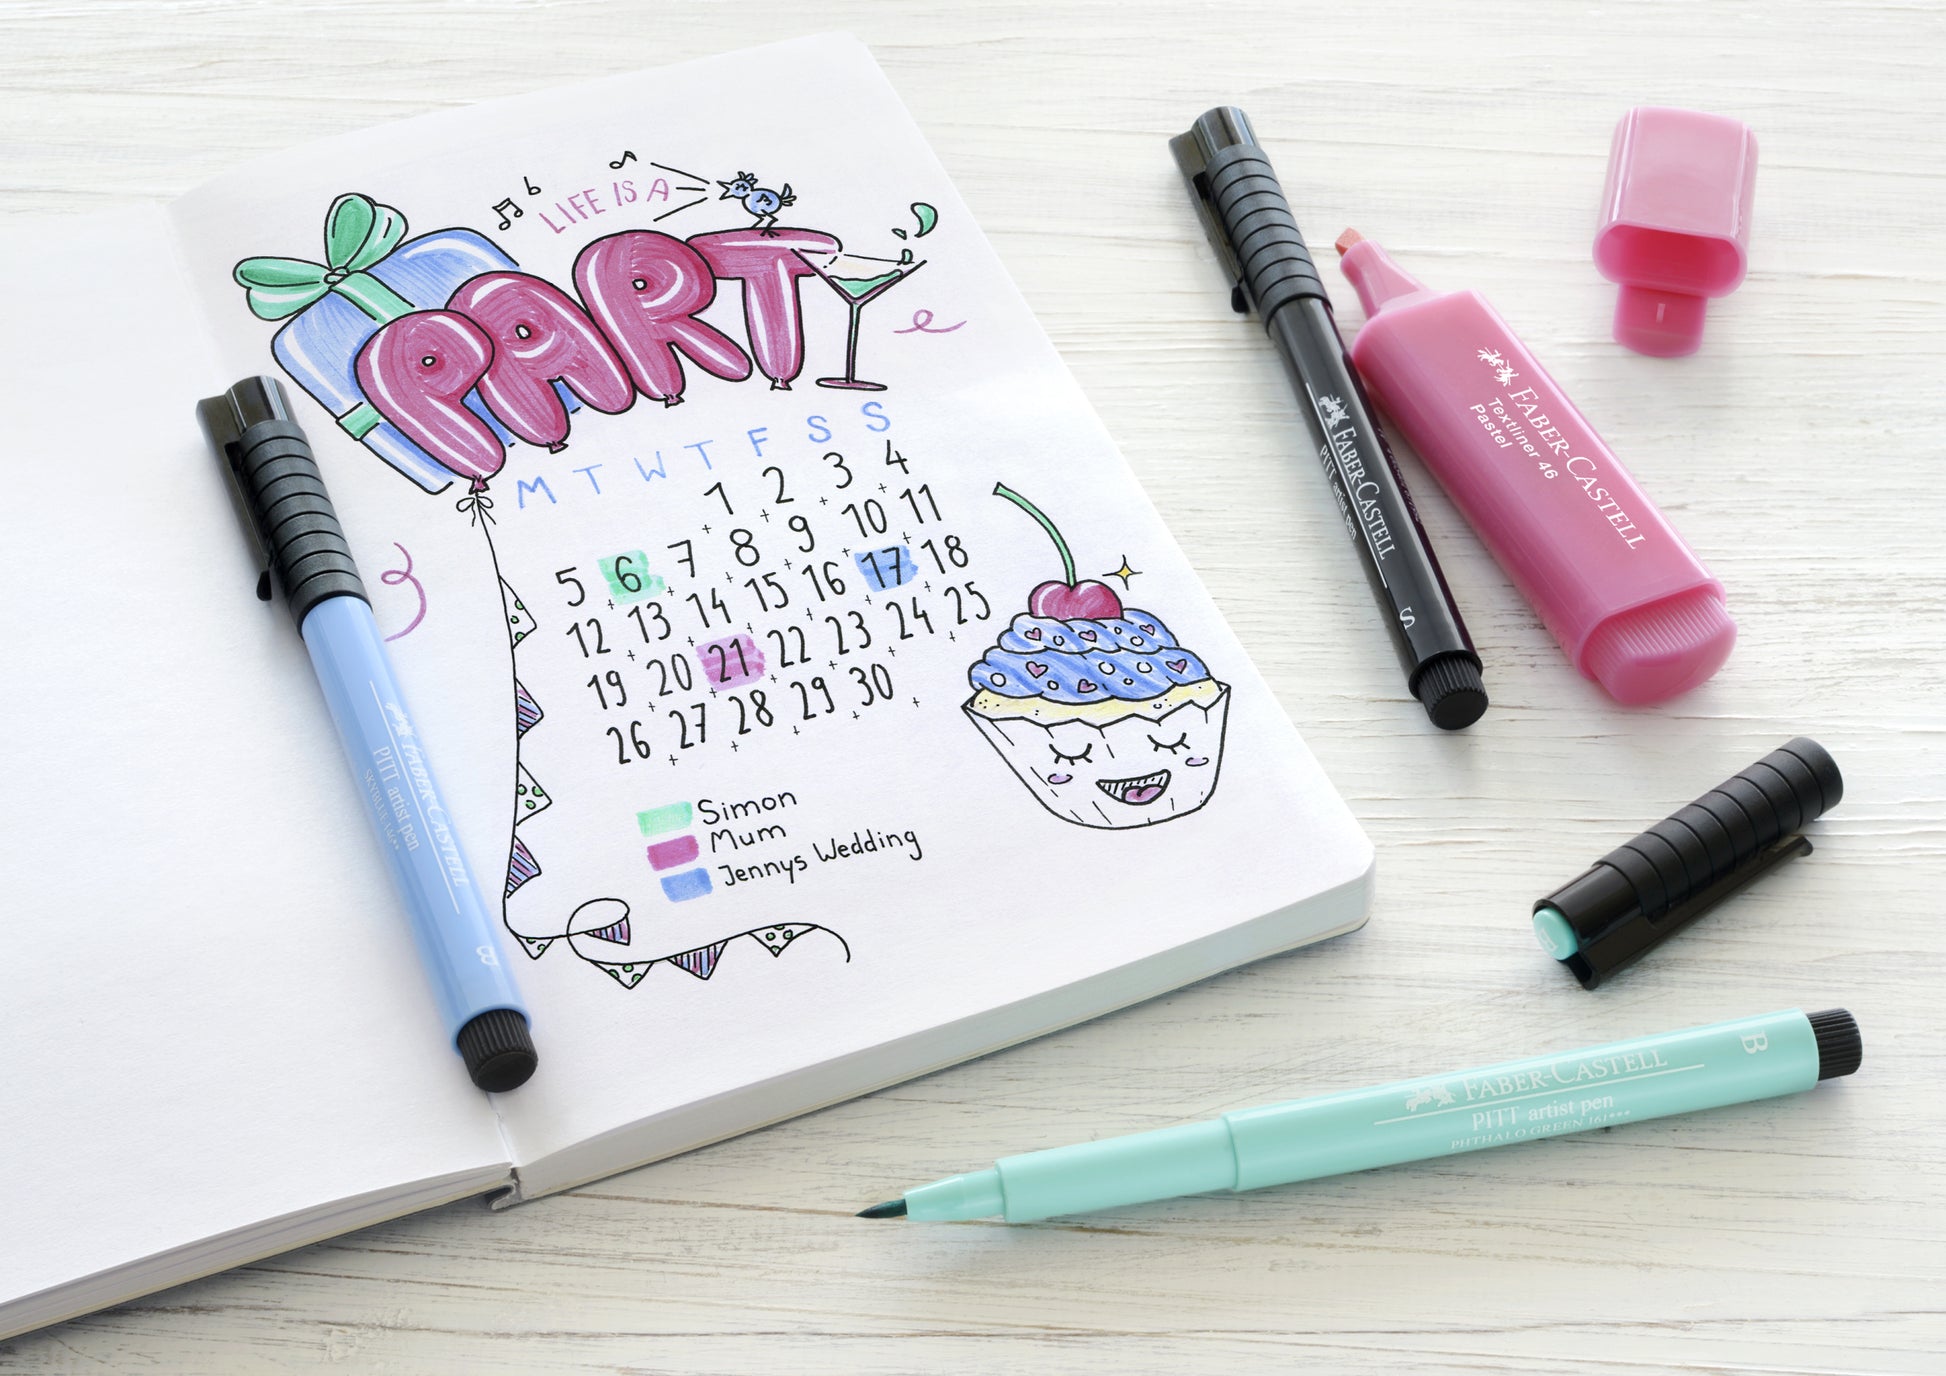 LIFE IS A
PARTY
M T W T F S S
1 2 3 4
5 6 7 8 9 10 11
12 13 14 15 16 17 18
19 20 21 22 23 24 25
26 27 28 29 30
Simon
Mum
Jennys Wedding
FABER-CASTELL
PITT artist pen
SKYBLUE 146**
B
FABER-CASTELL
PITT artist pen
S
FABER-CASTELL
Textliner 46
Pastel
FABER-CASTELL
PITT artist pen
PHTHALO GREEN 161***
B